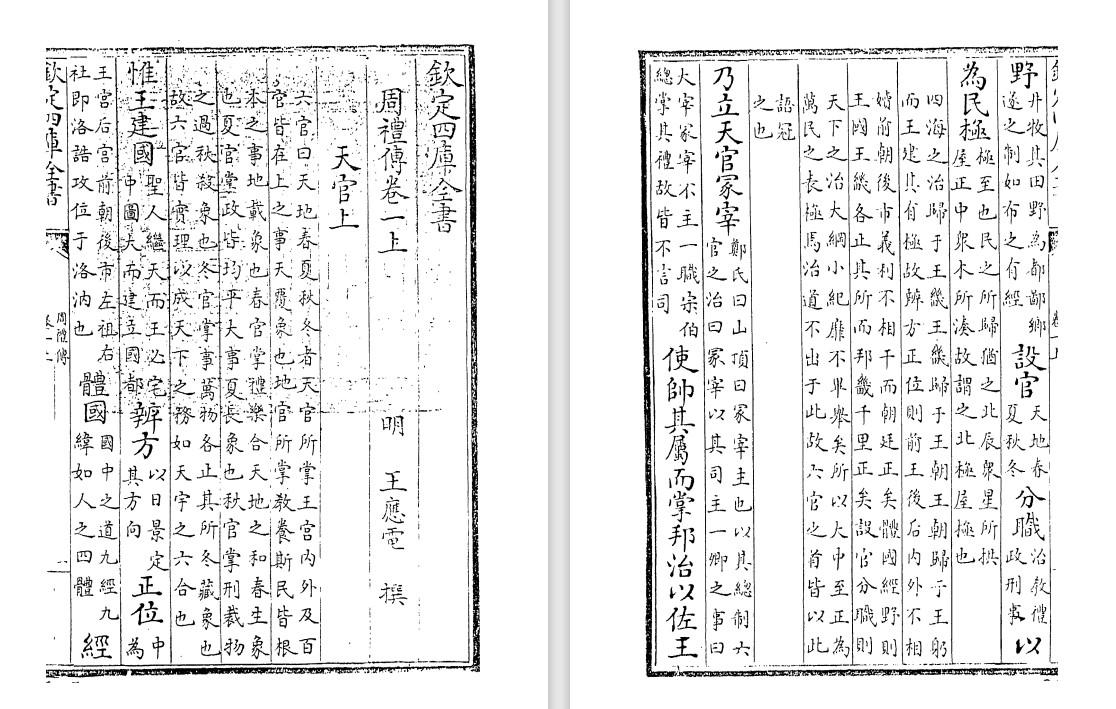 欽定四庫全書
周禮傳卷一上 明 王應電 撰
天官上
六官曰天地春夏秋冬者天官所掌王宮內外及百
官皆在上之事天覆象也地官所掌教養斯民皆根
本之事地載象也春官掌禮樂合天地之和春生象
也夏官掌政皆均平大事夏長象也秋官掌刑裁物
之過秋殺象也冬官掌事萬物各止其所冬藏象也
故六官皆實理以成天下之務如天宇之六合也
惟王建國 聖人繼天而王必宅中圖大而建立國都 辨方 以日景定其方向 正位 中為
王宮后宮前朝後市左祖右社即洛誥攻位于洛汭也 體國 國中之道九經九緯如人之四體 經
欽定四庫全書 周禮傳 卷一上
野 井牧其田野為都鄙鄉遂之制如布之有經 設官 天地春夏秋冬 分職 治教禮政刑事 以
為民極 極至也民之所歸猶之北辰眾星所拱屋正中眾木所湊故謂之北極屋極也
四海之治歸于王畿王畿歸于王朝王朝歸于王躬
而王建其有極故辨方正位則前王後后內外不相
前朝後市義利不相干而朝廷正矣體國經野則
王國王畿各止其所而邦畿千里正矣設官分職則
天下之治大綱小紀靡不畢舉矣所以大中至正為
萬民之表極焉治道不出于此故六官之首皆以此
語冠
之也
乃立天官冢宰 鄭氏曰山頂曰冢宰主也以其總制六官之治曰冢宰以其司主一卿之事曰
大宰冢宰不主一職宗伯總掌其禮故皆不言司 使帥其屬而掌邦治以佐王